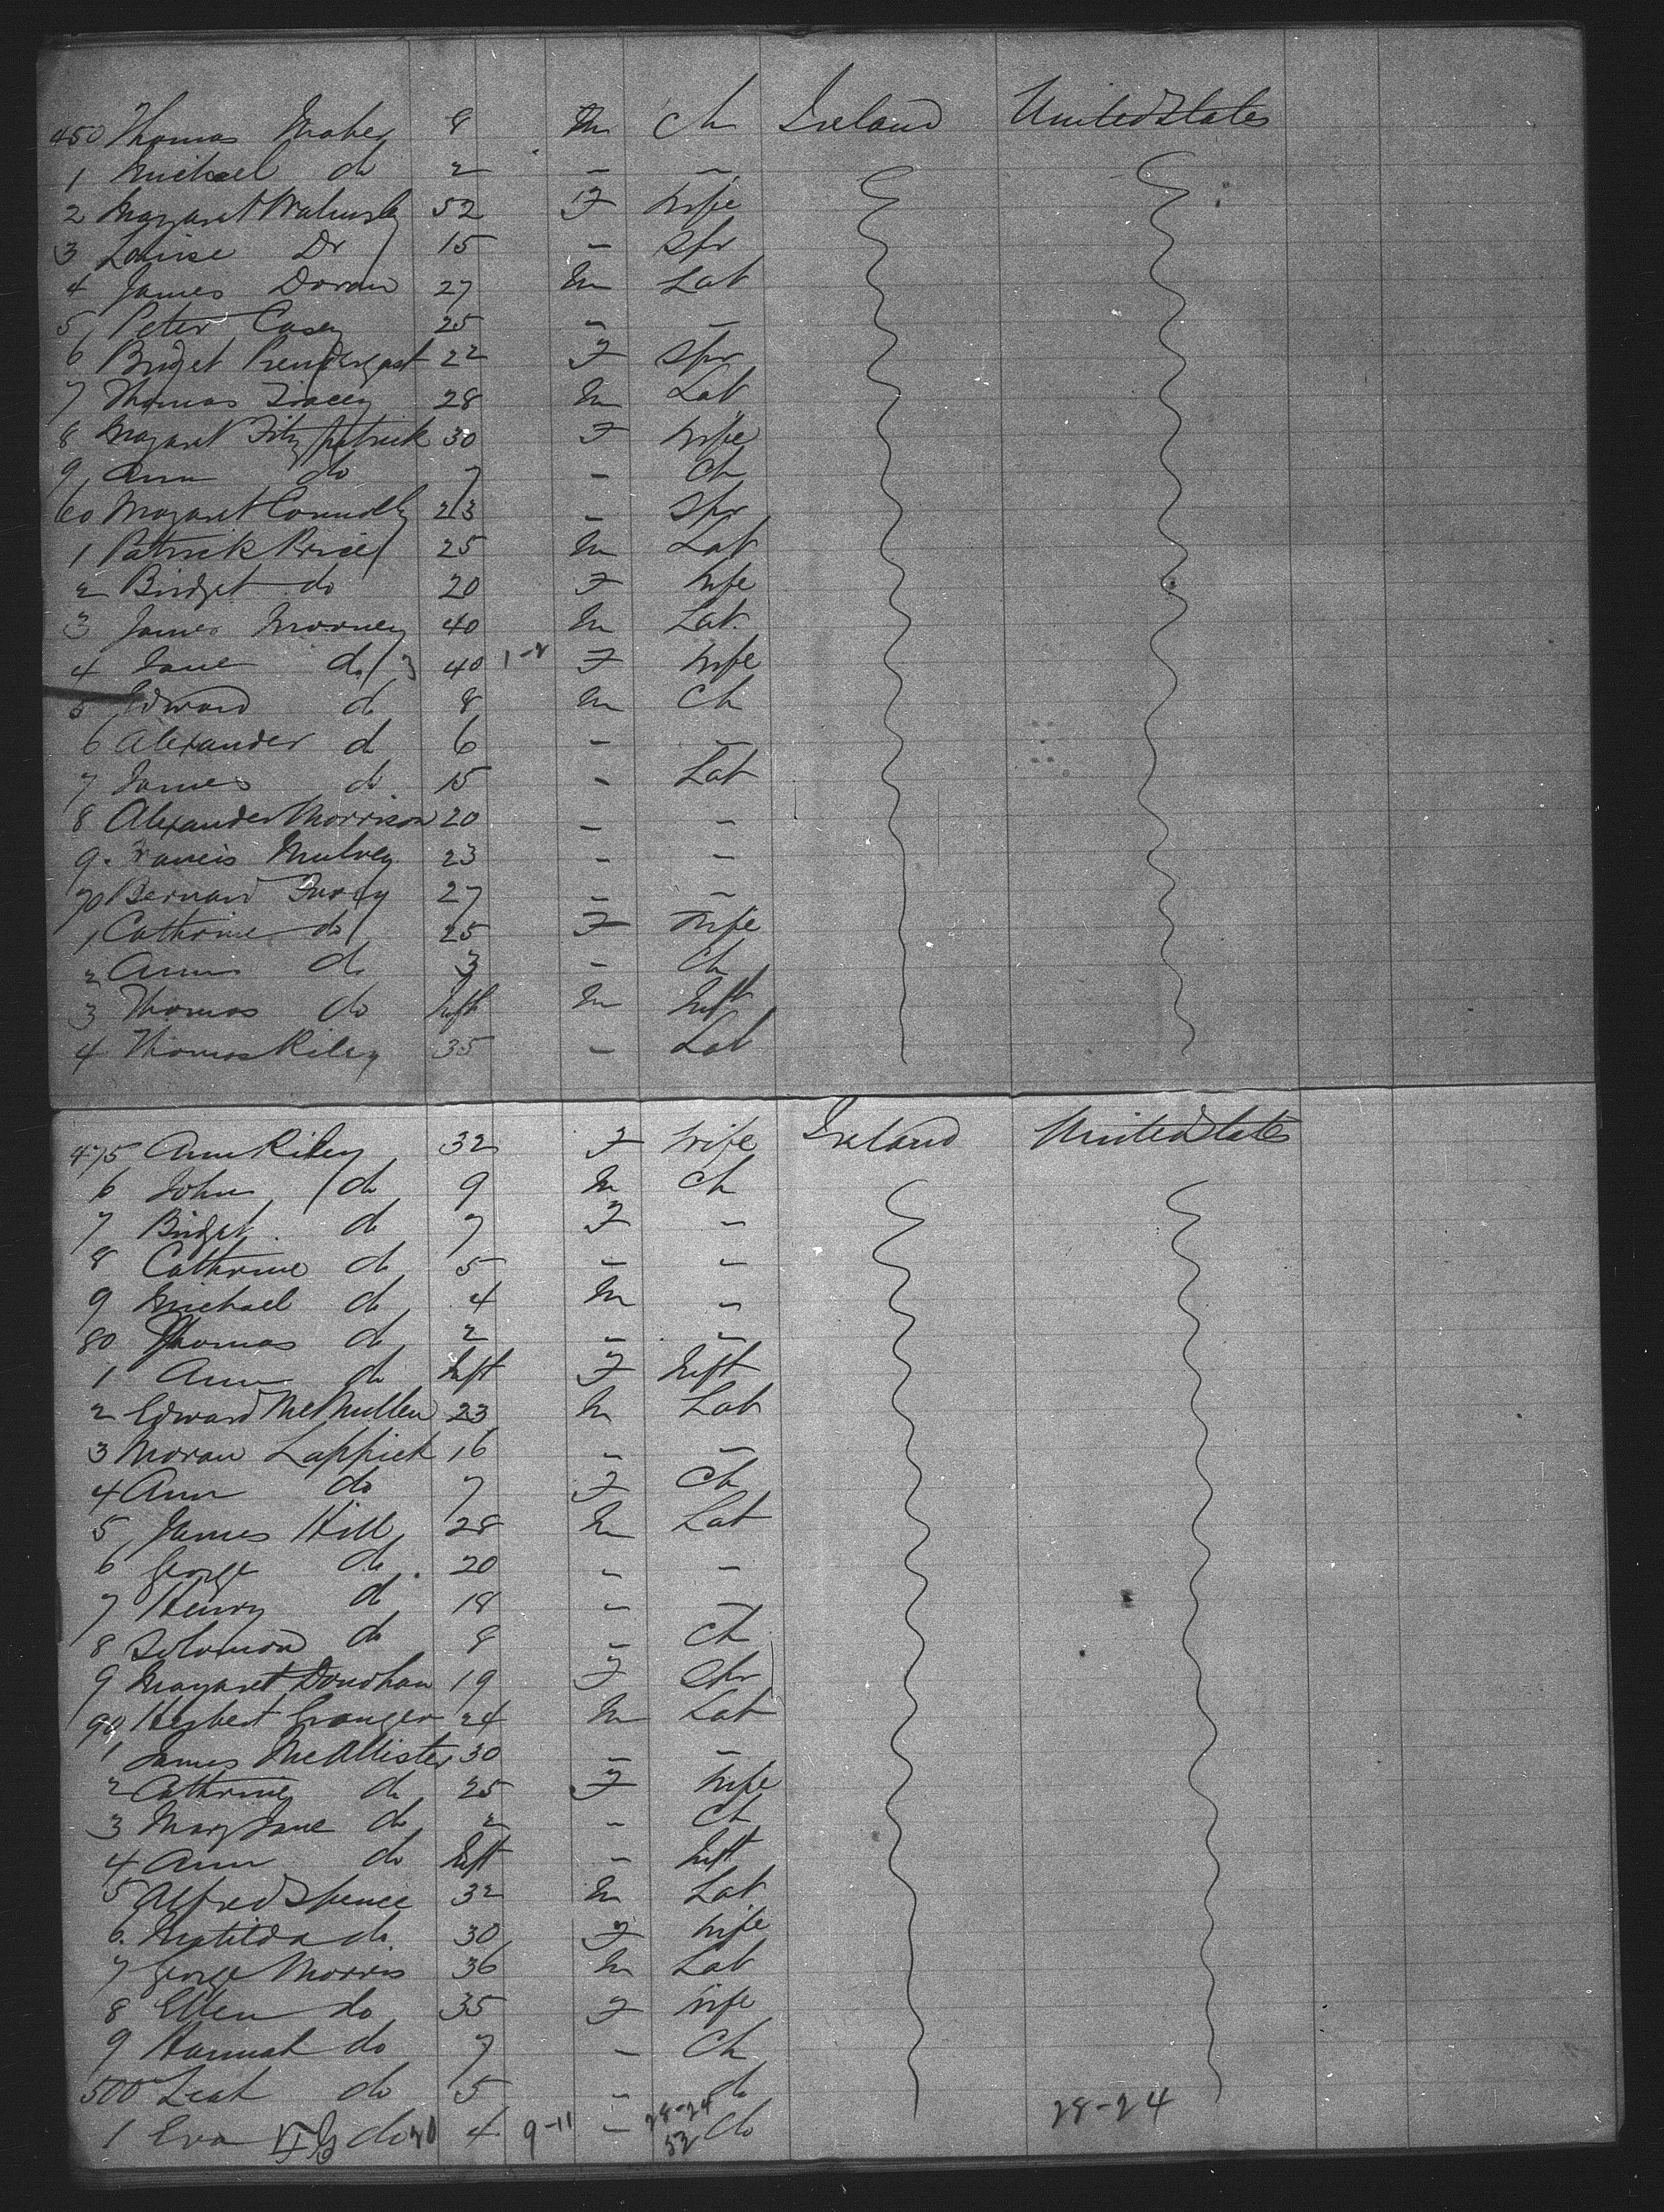 450 Thomas Maher 8 M Ch Ireland United States
1 Michael do 2 - -
2 Margaret Walmsly 52 F Wife
3 Louise Do 15 - Spr
4 James Doran 27 M Lab
5 Peter Casey 25 - -
6 Bridget Prendergast 22 F Spr
7 Thomas Tracey 28 M Lab
8 Margaret Fitzpatrick 30 F Wife
9 Ann do 7 - Ch
60 Margaret Connolly 23 - Spr
1 Patrick Price 25 M Lab
2 Bridget do 20 F Wife
3 James Mooney 40 M Lab
4 Jane do 3 40 1-8 F Wife
5 Edward do 8 M Ch
6 Alexander do 6 - -
7 James do 15 - Lab
8 Alexander Morrison 20 - -
9 Francis Mulvey 23 - -
70 Bernard Furey 27 - -
1 Cathrine do 25 F Wife
2 Ann do 3 - Ch
3 Thomas do Inft M Inft
4 Thomas Riley 35 - Lab
475 Ann Riley 32 F Wife Ireland United States
6 John do 9 M Ch
7 Bridget do 7 F -
8 Cathrine do 5 - -
9 Michael do 4 M -
80 Thomas do 2 - -
1 Ann do Inft F Inft
2 Edward McMullen 23 M Lab
3 Moran Lappick 16 - -
4 Ann do 7 F Ch
5 James Hill 28 M Lab
6 George do 20 - -
7 Henry do 18 - -
8 Solomon do 8 - Ch
9 Margaret Donohan 19 F Spr
90 Herbert Granger 24 M Lab
1 James McAllister 30 - -
2 Cathrine do 25 F Wife
3 Mary Jane do 2 - Ch
4 Ann do Inft - Inft
5 Alfred Spence 32 M Lab
6 Matilda do 30 F Wife
7 George Morris 36 M Lab
8 Ellen do 35 F Wife
9 Hannah do 7 - Ch
500 Leah do 5 - do
1 Eva do 4 9-11 - 28-24 52 do 28-24